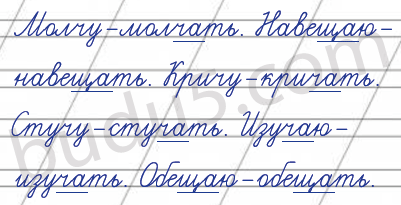 Молчу – молчать. Навещаю –
навещать. Кричу – кричать.
Стучу – стучать. Изучаю –
изучать. Обещаю – обещать.
budu5.com